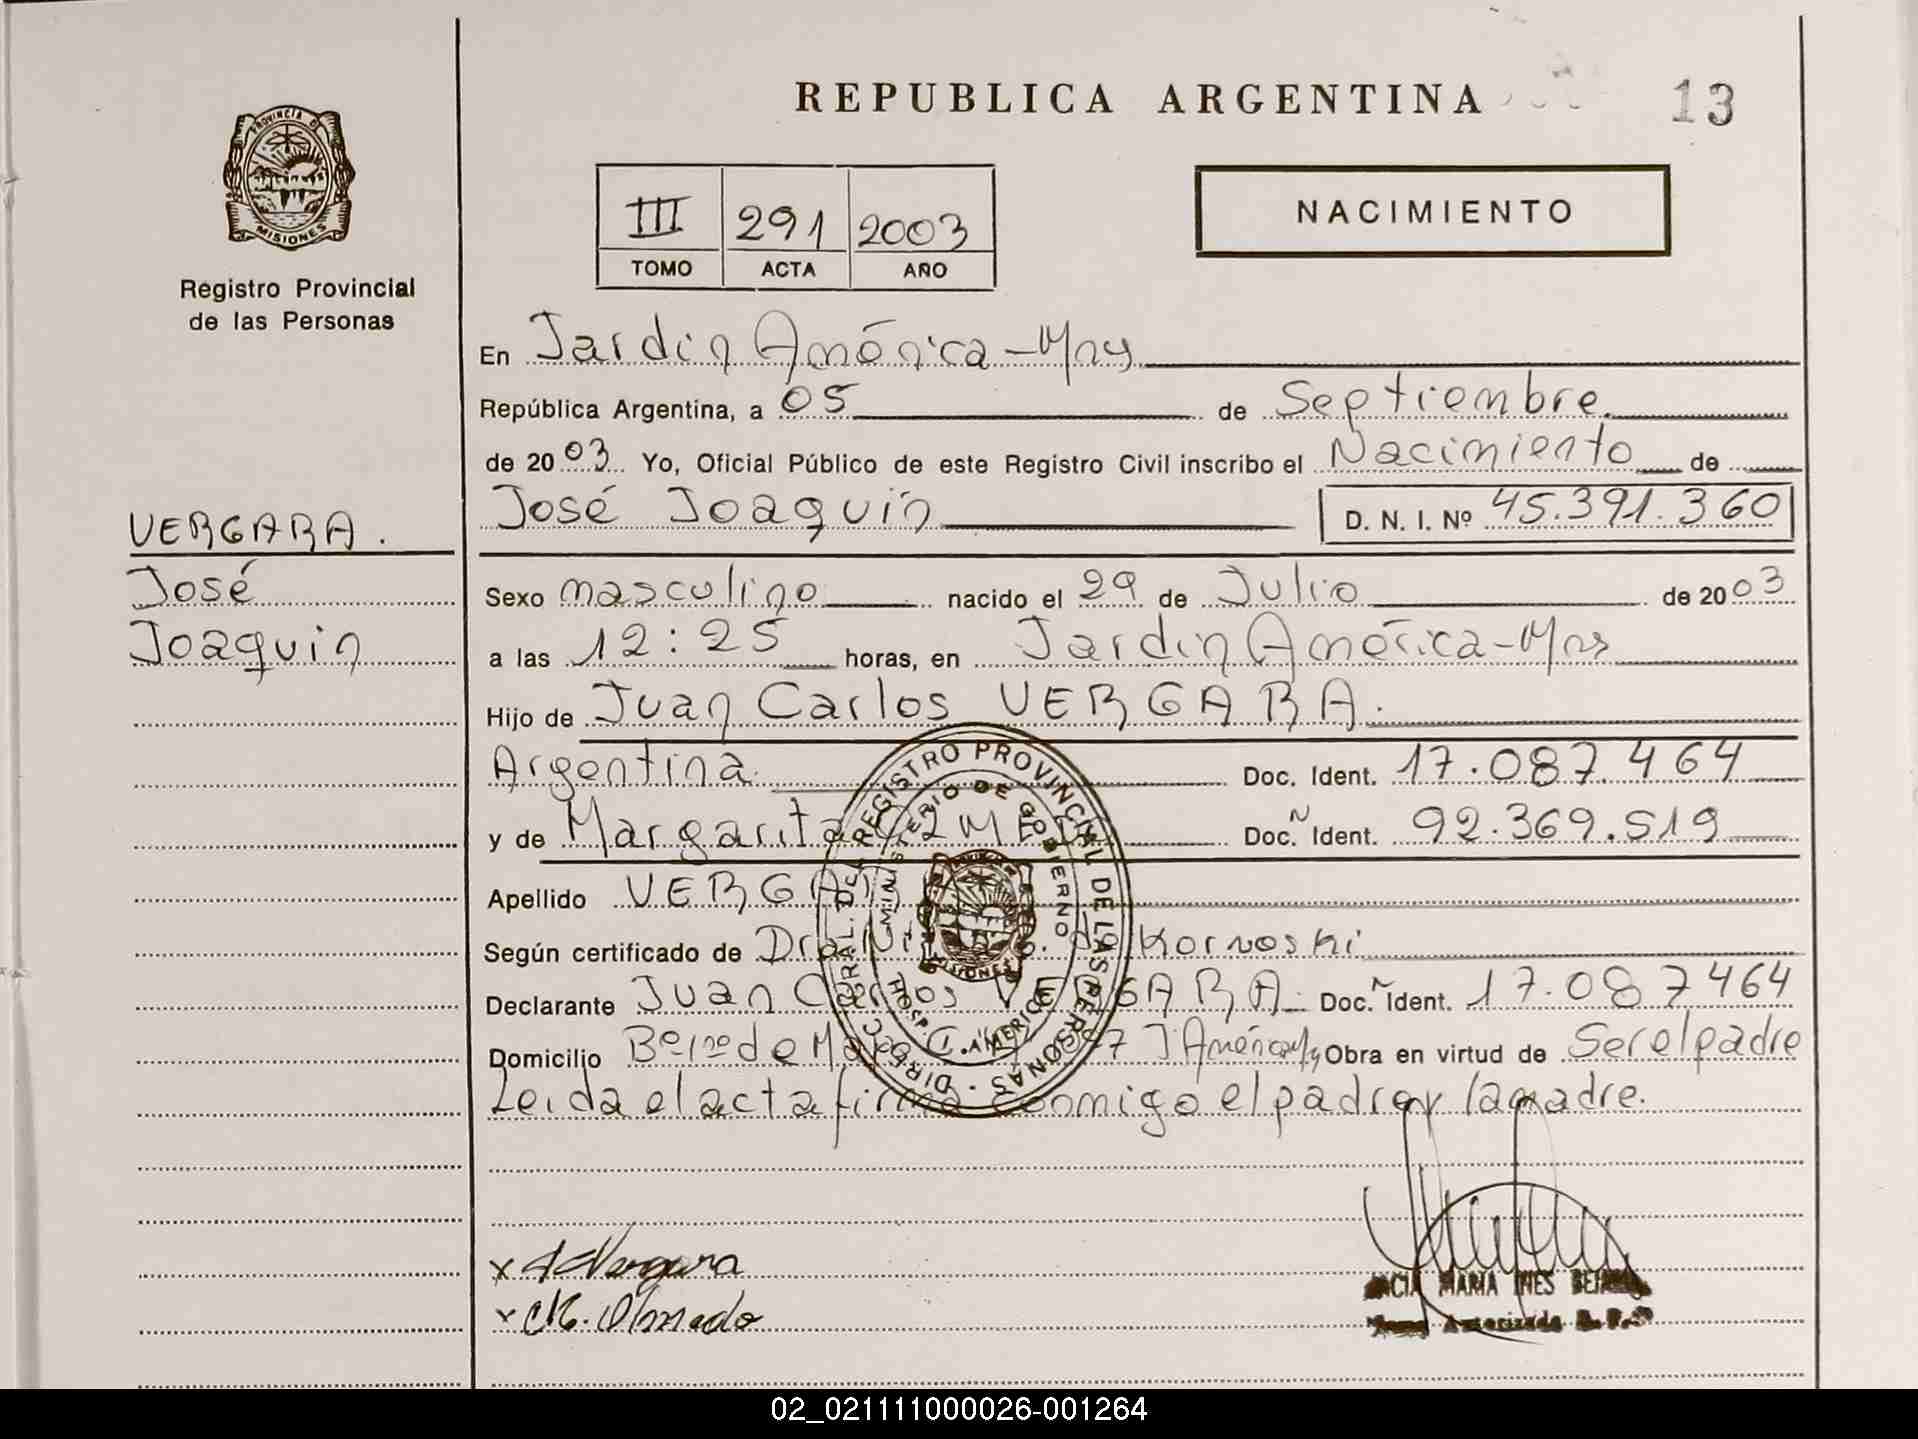 REPUBLICA ARGENTINA
13
PROVINCIA DE
MISIONES
Registro Provincial
de las Personas
III 291 2003
TOMO ACTA AÑO
NACIMIENTO
En Jardin América - Mnes
República Argentina, a 05 de Septiembre
de 2003 Yo, Oficial Público de este Registro Civil inscribo el Nacimiento de
José Joaquín D. N. I. Nº 45.391.360
VERGARA.
José
Joaquín
Sexo masculino nacido el 29 de Julio de 2003
a las 12:25 horas, en Jardin América - Mnes
Hijo de Juan Carlos VERGARA.
Argentina Doc. Ident. 17.087.464
y de Margarita Doc. Ident. 92.369.519
Apellido
Según certificado de Dra. de Kornoski
Declarante Juan Carlos VERGARA Doc. Ident. 17.087464
Domicilio Bº 1º de Mayo J América Obra en virtud de Ser el padre
Leida el acta firma conmigo el padre y la madre.
DIRECC. GRAL. DEL REGISTRO PROVINCIAL DE LAS PERSONAS
MINISTERIO DE GOBIERNO
MISIONES
x Vergara
x M. Olmedo
MARIA INES
Autorizada
02_021111000026-001264